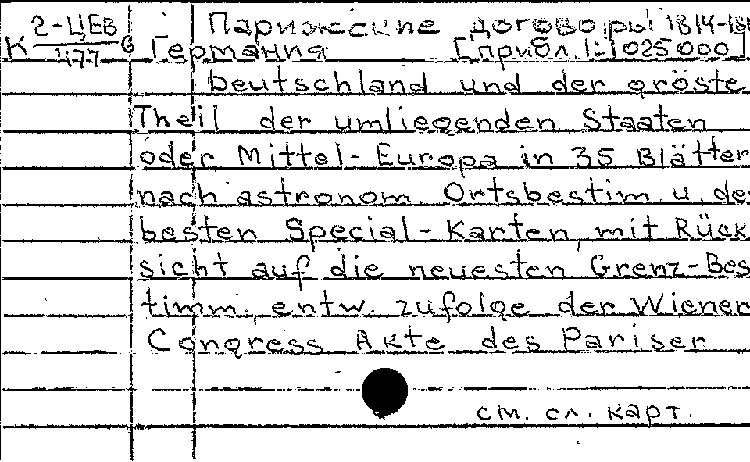 Парижские договоры 1814-181
К 2-ЦЕВ/477 6 Германия [прибл. 1:1025000]
Deutschland und der gröste
Theil der umliegenden Staaten
oder Mittel-Europa in 35 Blätter
nach astronom. Ortsbestim u. de
besten Special-Karten, mit Rück
sicht auf die neuesten Grenz-Bes
timm. entw. zufolge der Wiener
Congress Akte des Pariser
см. сл. карт.